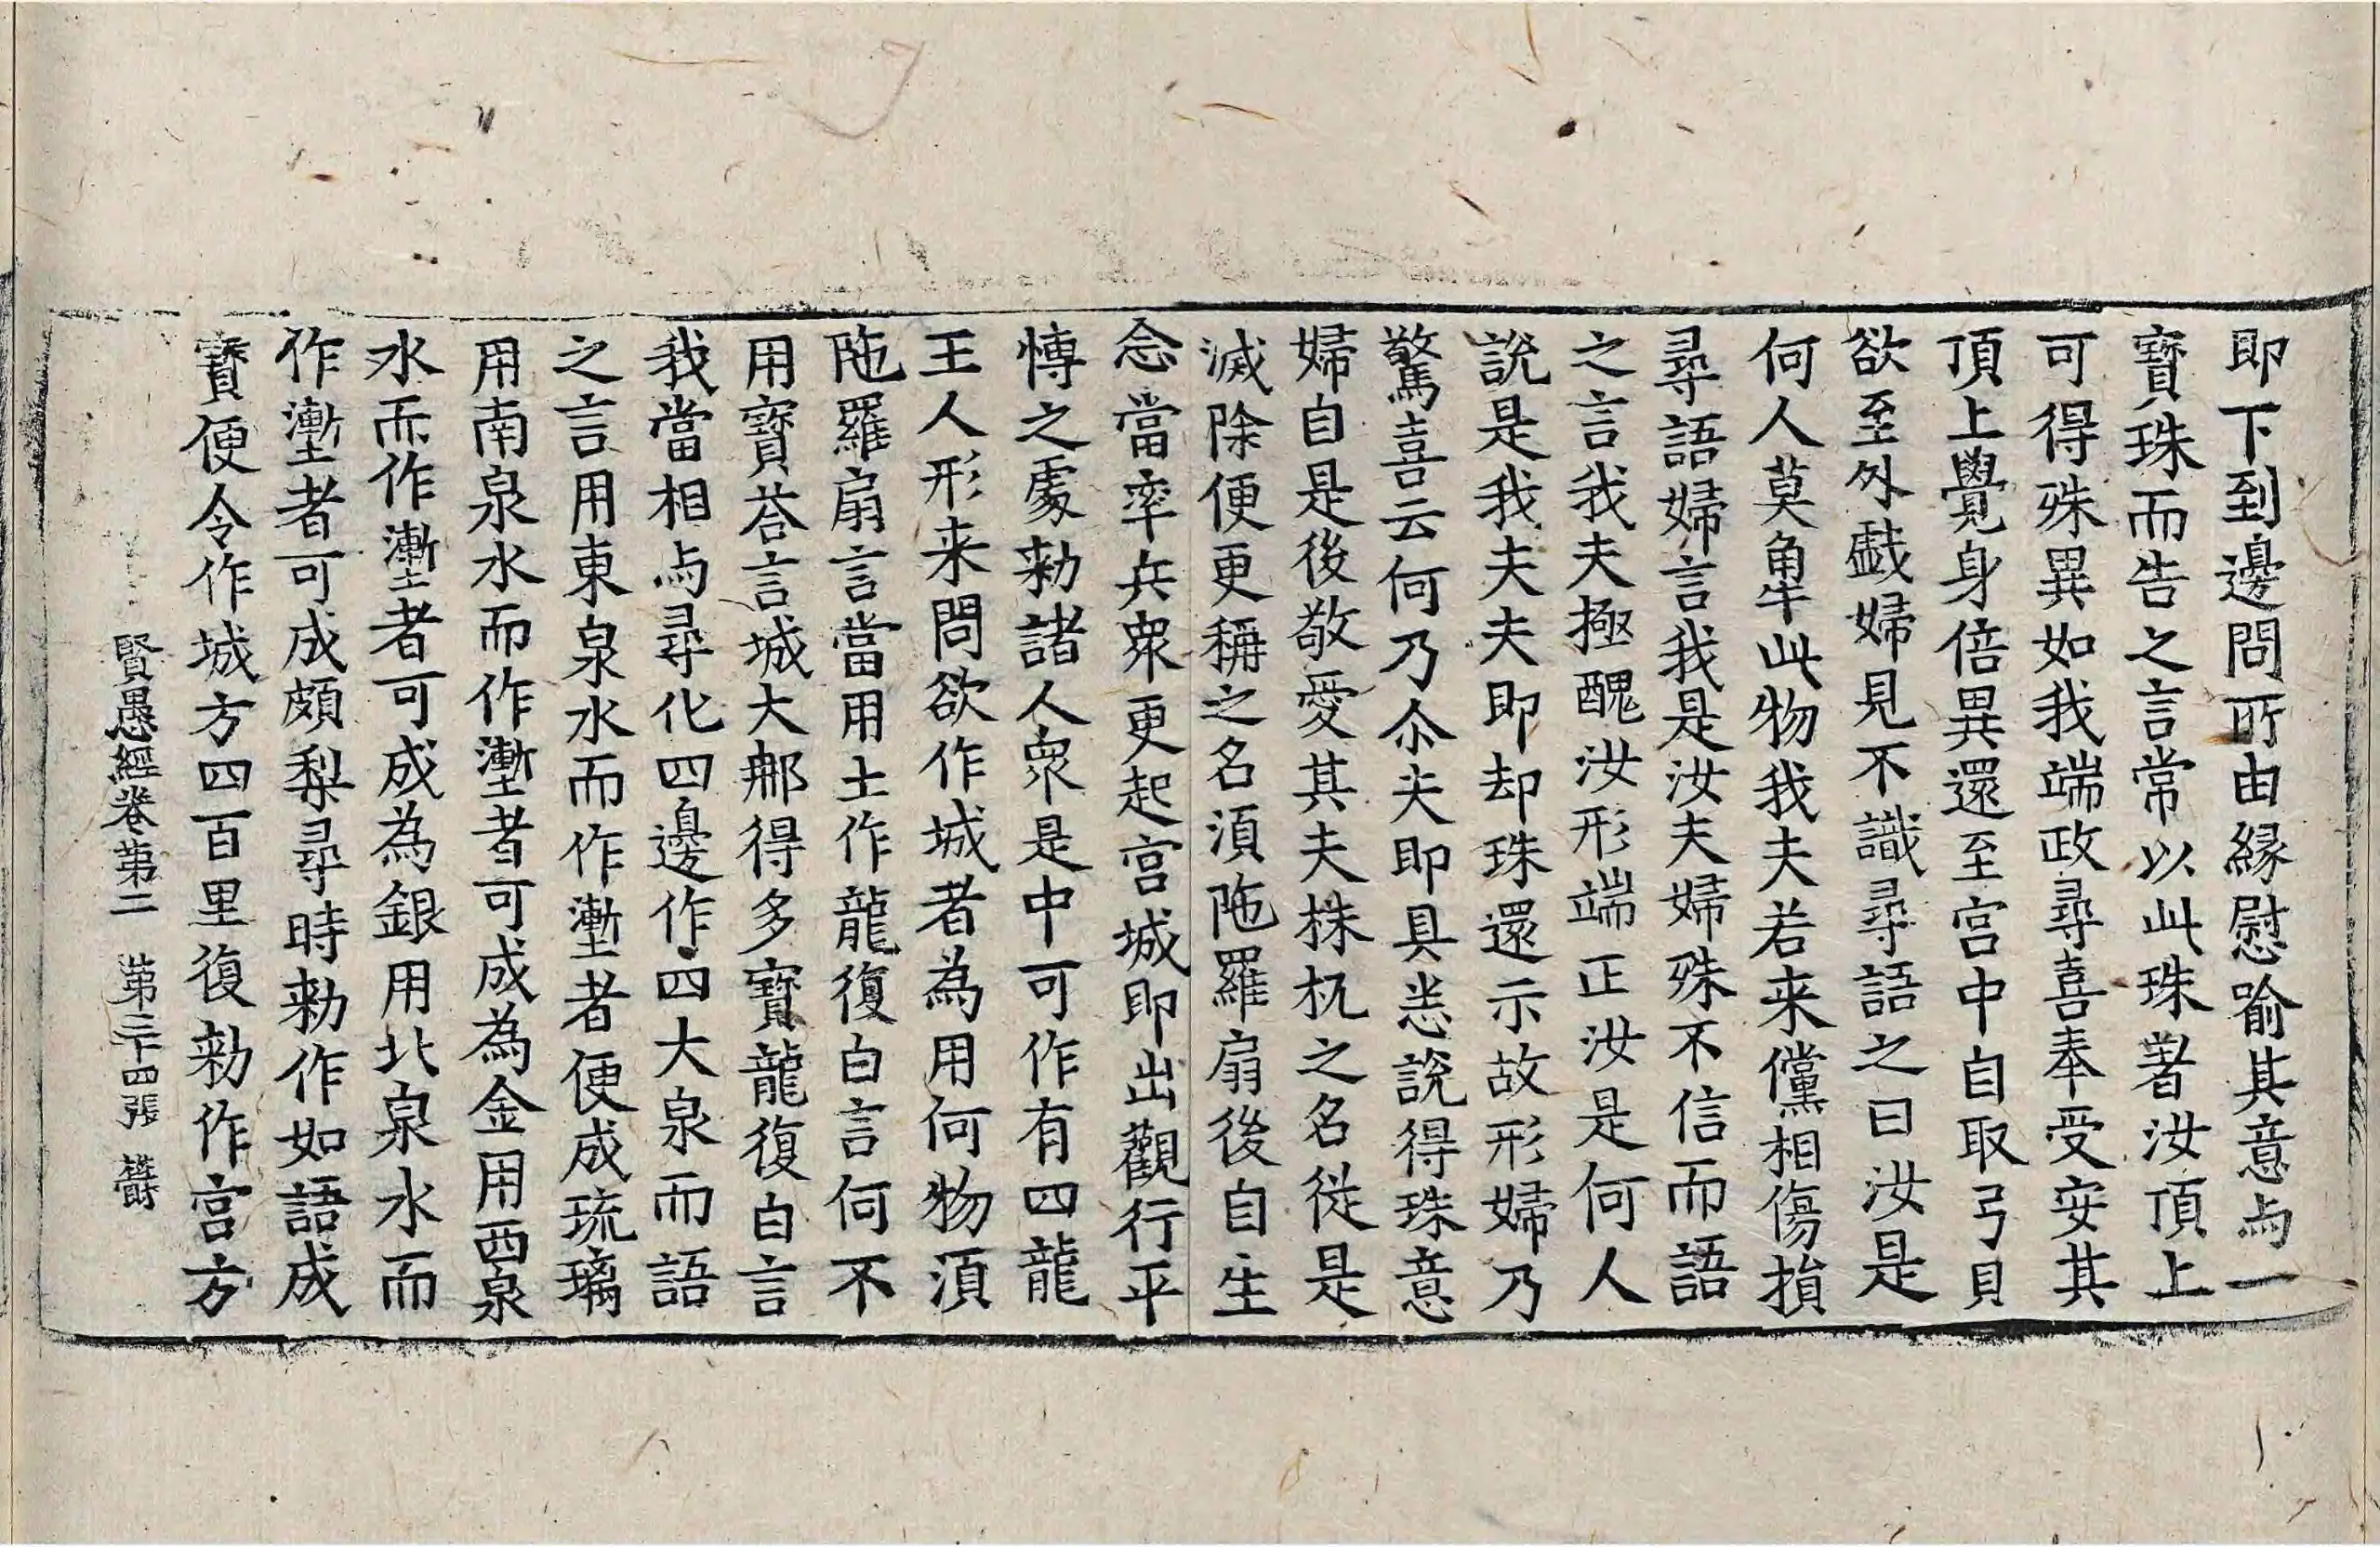 即下到邊問所由縁慰喻其意与一
寶珠而告之言常以此珠著汝頂上
可得殊異如我端政尋喜奉受安其
頂上覺身倍異還至宮中自取弓貝
欲至外戱婦見不識尋語之曰汝是
何人莫觸此物我夫若来儻相傷損
尋語婦言我是汝夫婦殊不信而語
之言我夫極醜汝形端正汝是何人
說是我夫夫即却珠還示故形婦乃
驚喜云何乃尒夫即具恙說得珠意
婦自是後敬愛其夫株杌之名従是
滅除便更稱之名湏陁羅扇後自生
念當率兵衆更起宮城即出觀行平
愽之處勑諸人衆是中可作有四龍
王人形来問欲作城者為用何物湏
陁羅扇言當用土作龍復白言何不
用寶荅言城大那得多寶龍復白言
我當相与尋化四邊作四大泉而語
之言用東泉水而作壍者便成琉璃
用南泉水而作壍者可成為金用西泉
水而作壍者可成為銀用北泉水而
作壍者可成頗梨尋時勑作如語成
寶便令作城方四百里復勑作宮方
賢愚經卷第二 第三十四張